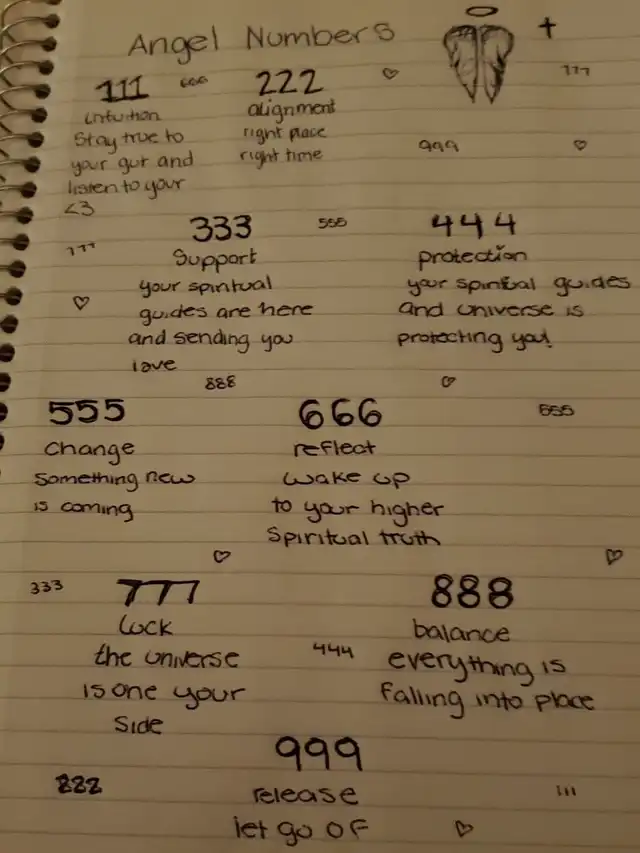 Angel Numbers
111 666 222 777
intuition alignment
Stay true to right place 999
your gut and right time
listen to your
<3
333 555 444
777 Support protection
your spiritual your spiritual guides
guides are here and universe is
and sending you protecting you!
love
888
555 666 555
Change reflect
Something new wake up
is coming to your higher
Spiritual truth
333 777 888
luck balance
the universe 444 everything is
is one your falling into place
Side
999
222 release 111
let go of